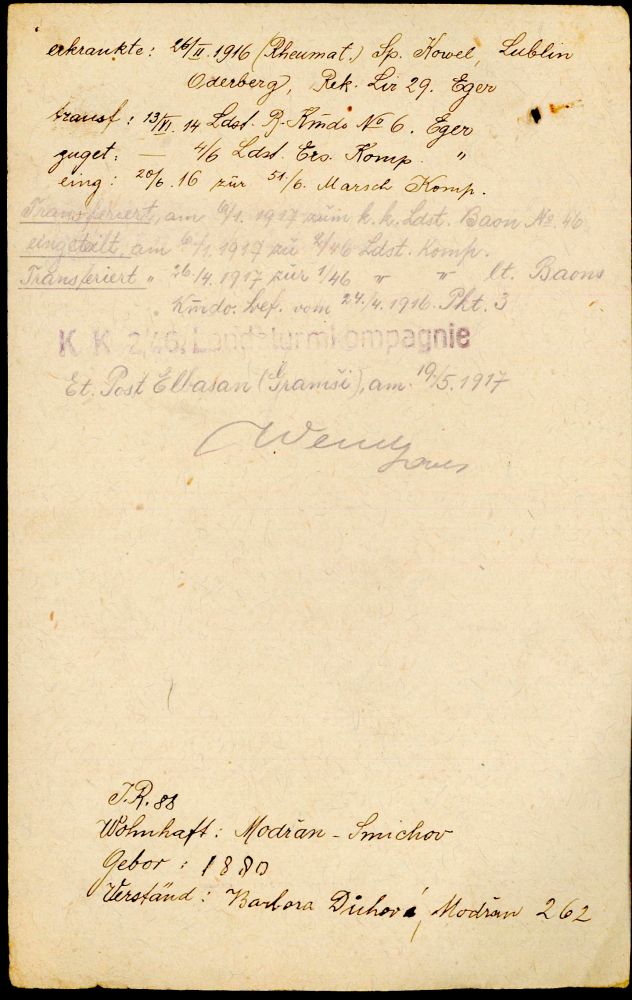 erkrankte: 26/II. 1916 (Rheumat.) Sp. Kowel, Lublin
Oderberg, Rek. Lir 29. Eger
transf: 13/VI. 14 Ldst. B. Kmdo No 6. Eger
zuget: — 4/6 Ldst. Ers. Komp. "
eing: 20/6. 16 zur 51/6. Marsch Komp.
Transferiert, am 6/1. 1917 zum k. k. Ldst. Baon No. 46
eingeteilt, am 6/1. 1917 zu 2/46 Ldst. Komp.
Transferiert " 26./4. 1917 zur 1/46 " " lt. Baons
Kmdo. bef. vom 24./4. 1916. Pkt. 3
K. K. 2/46. Landsturmkompagnie
Et. Post Elbasan (Gramši), am 19/5. 1917
J.R. 88
Wohnhaft: Modřan - Smichov
Gebor: 1880
Verständ: Barbora Duchová, Modřan 262